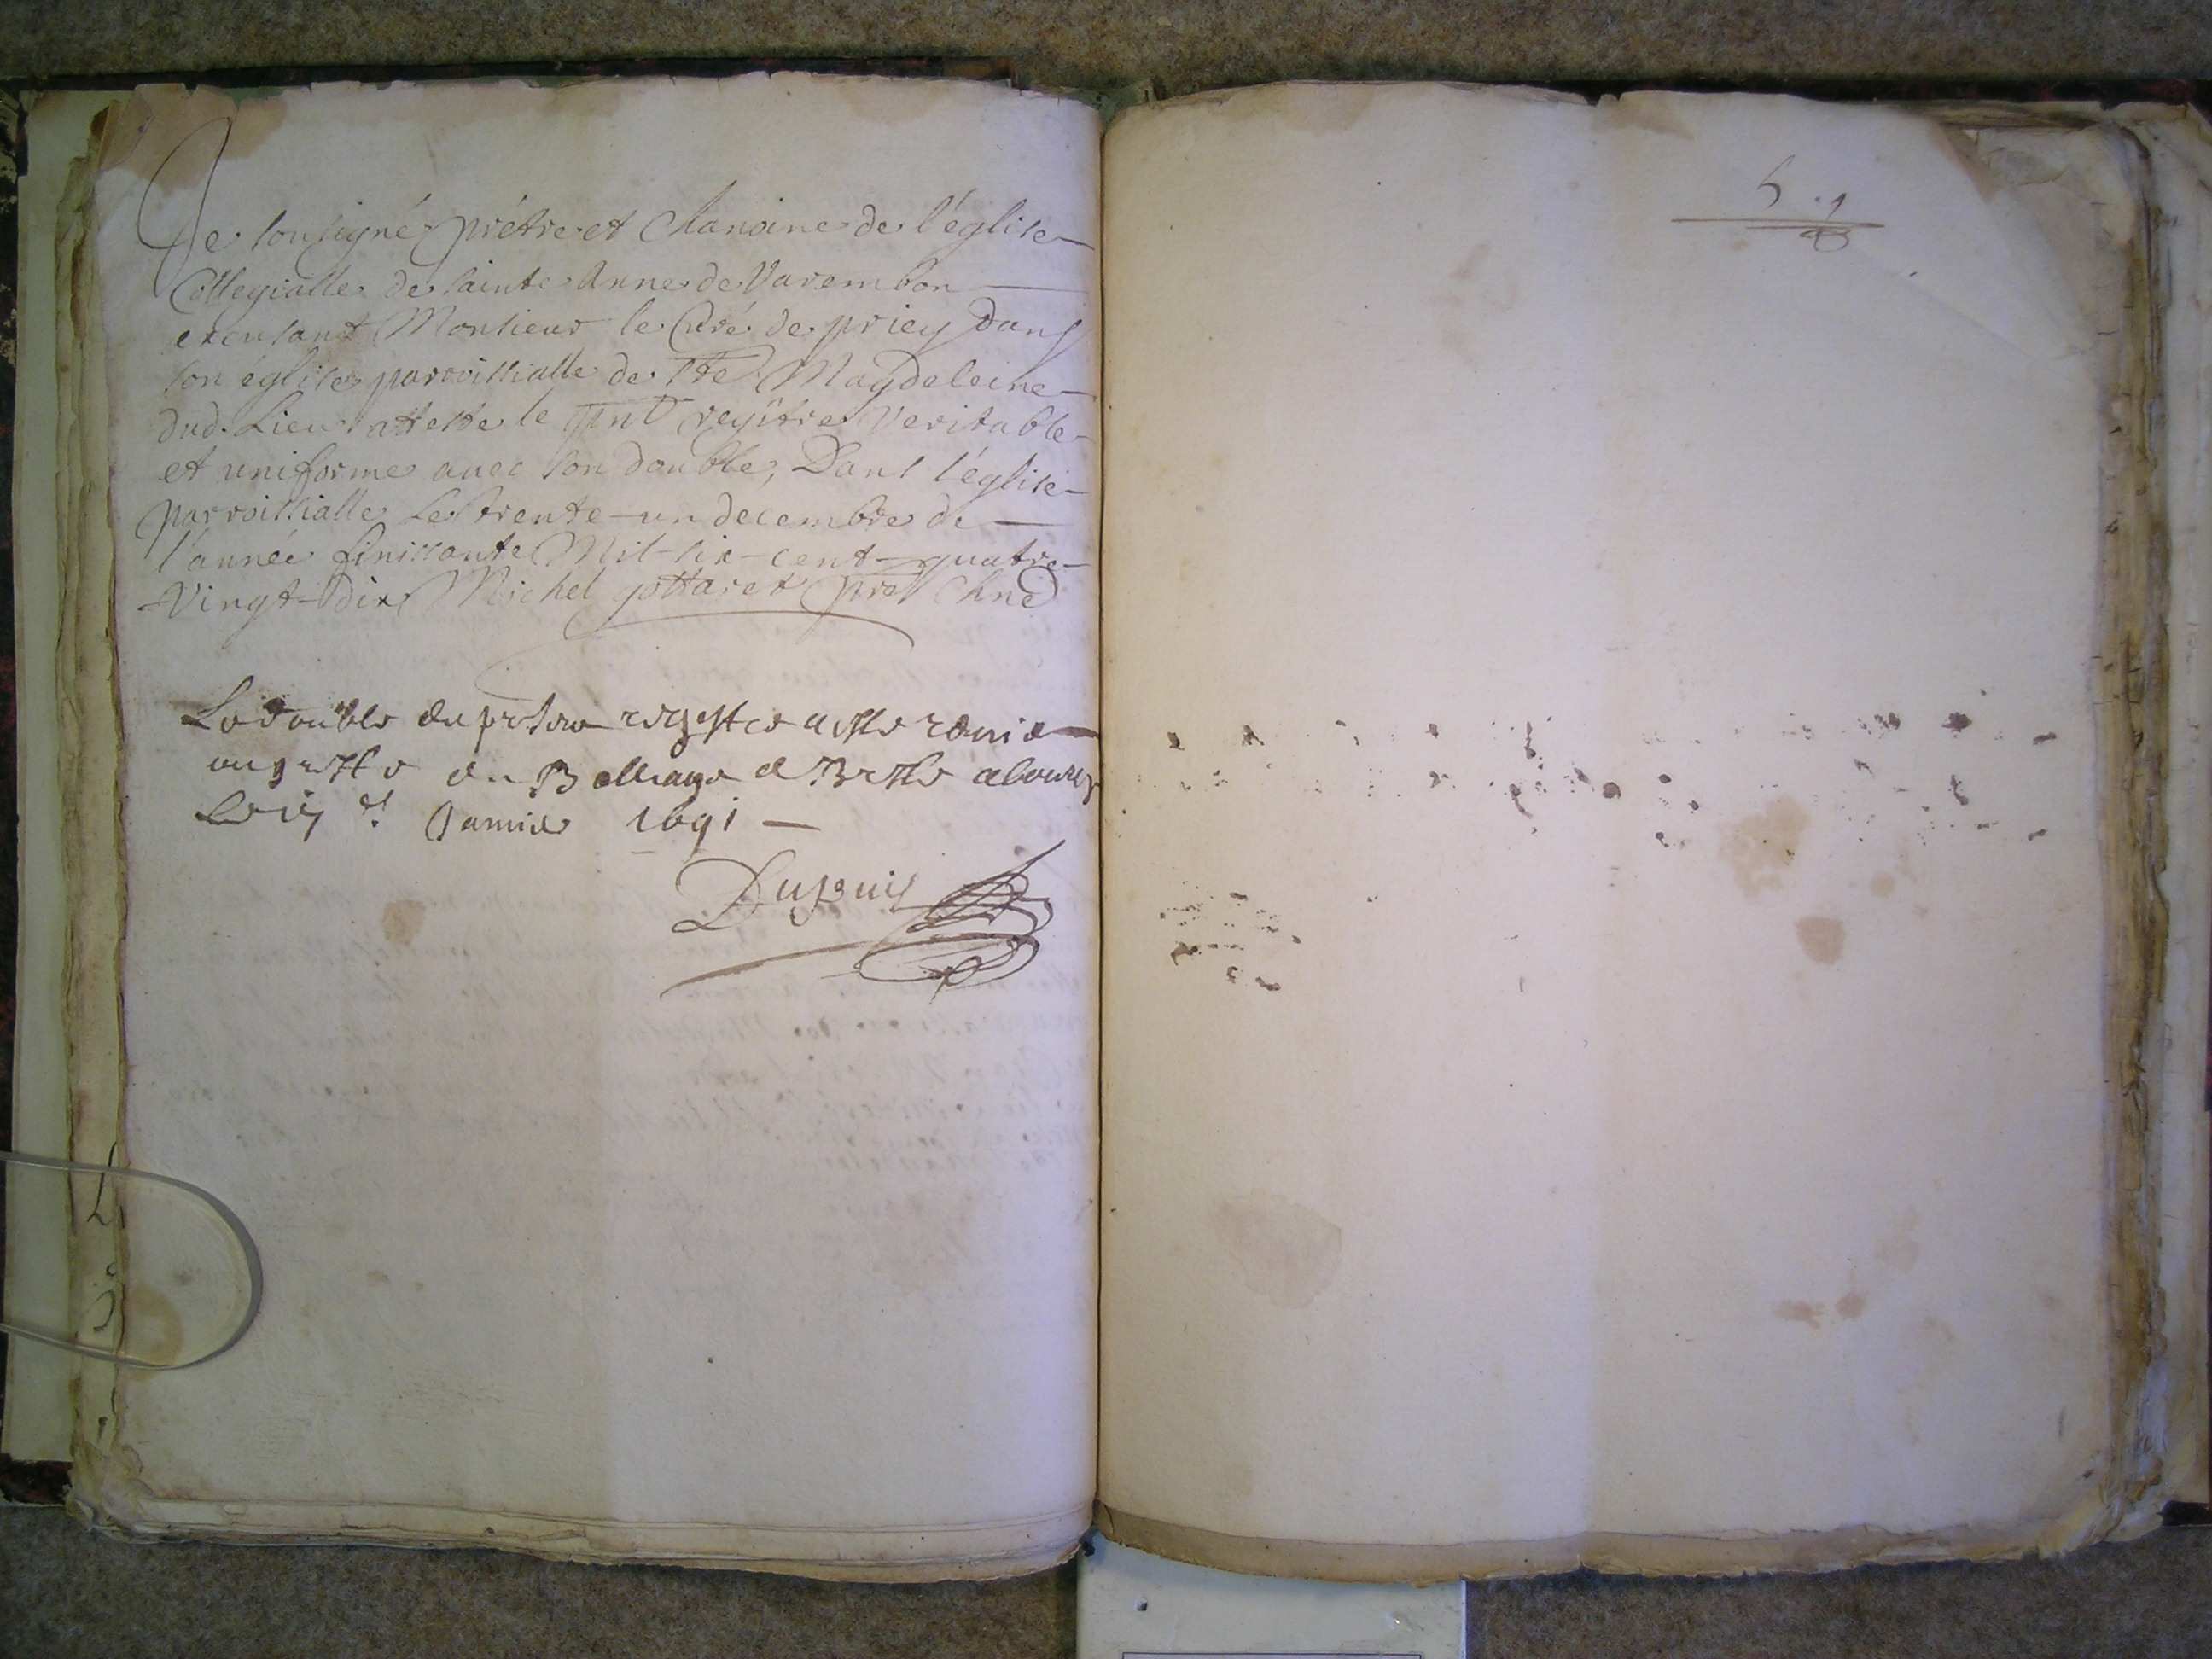 Je sousigné prétre et Chanoine de l'église
Collegialle de sainte Anne de Varembon
excusant Monsieur le Curé de priey dans
son église parroissialle de Ste Magdeleine
dud. Lieu atteste le pnt regître veritable
et uniforme avec son double, Dans l'église
parroissialle Le trente-un decembre de
l'année finissante Mil-six-cent-quatre-
Vingt-dix Michel gottaret pre Chne
Le double du registre a esté remis
au greffe du Balliage de Bresse a bourg
Le Janvier 1691
Dupuis